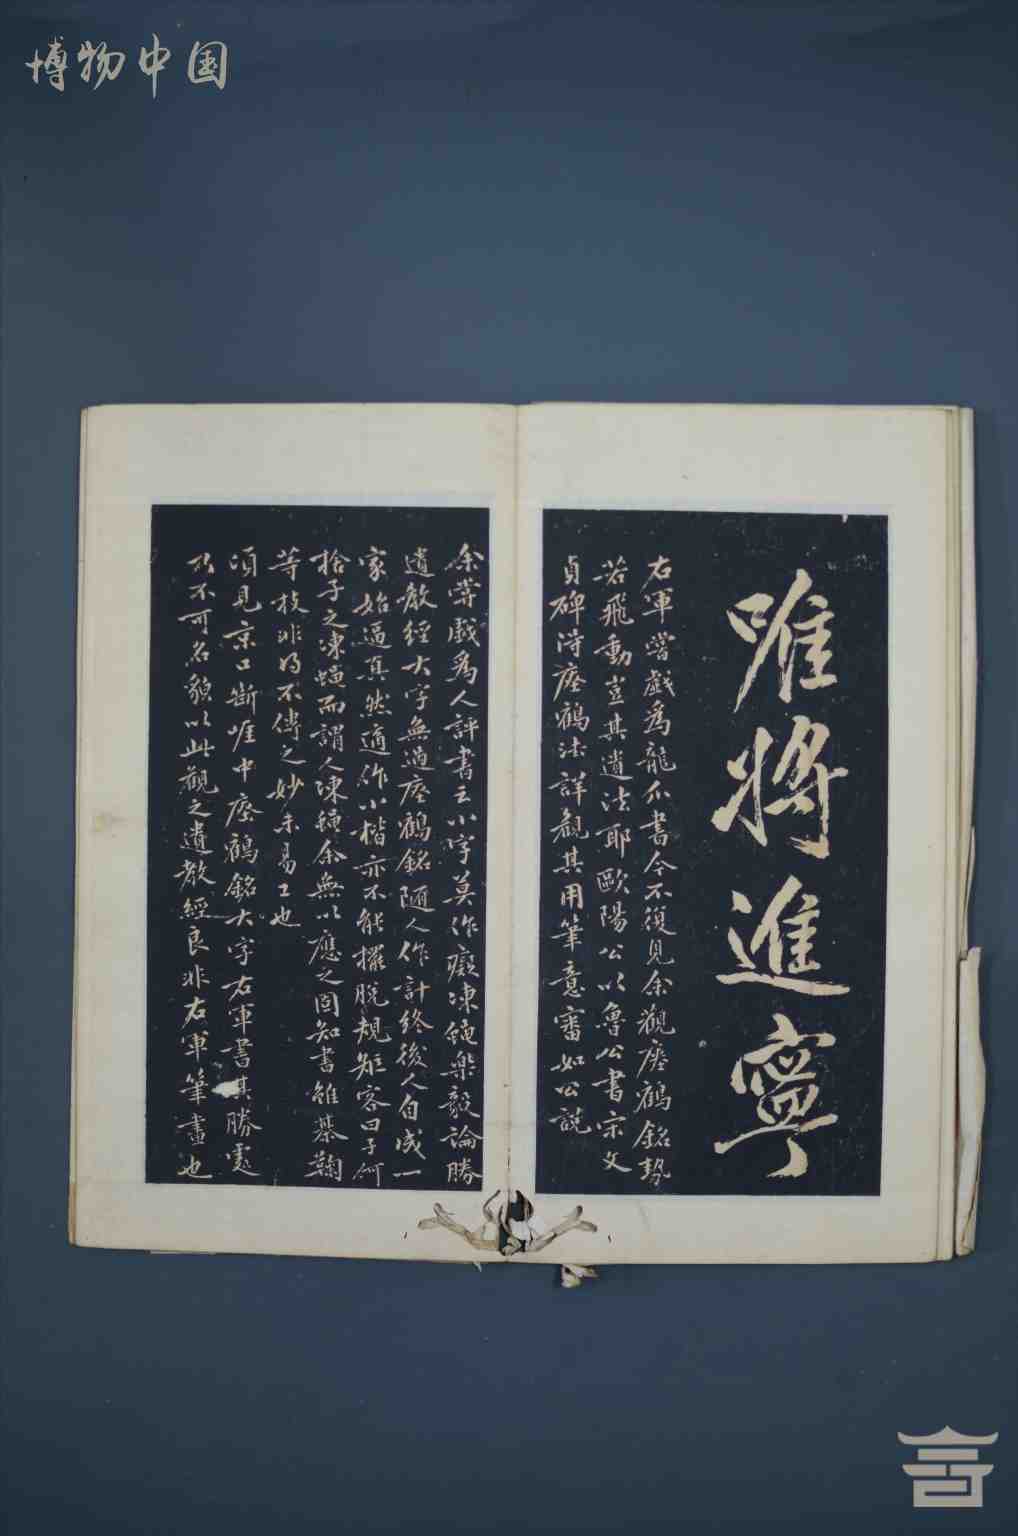 博物中国
唯將進寧
右軍嘗戲為龍爪書今不復見余觀瘞鶴銘勢
若飛動豈其遺法耶歐陽公以魯公書宋文
貞碑得瘞鶴法詳觀其用筆意審如公說
余嘗戲為人評書云小字莫作癡凍蠅樂毅論勝
遺教經大字無過瘞鶴銘隨人作計終後人自成一
家始逼真然適作小楷亦不能擺脫規矩客曰子何
捨子之凍蠅而謂人凍蠅余無以應之固知書雖棊鞠
等技非得不傳之妙未易工也
頃見京口斷崖中瘞鶴銘大字右軍書其勝處
乃不可名貌以此觀之遺教經良非右軍筆畫也